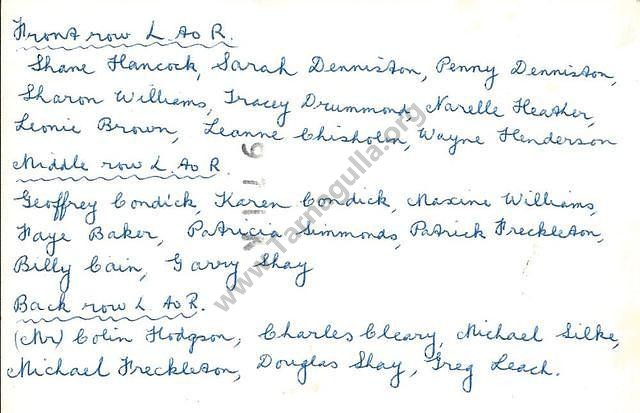 Front row L to R.
Shane Hancock, Sarah Denniston, Penny Denniston,
Sharon Williams, Tracey Drummond, Narelle Heather,
Leonie Brown, Leanne Chisholm, Wayne Henderson
Middle row L to R.
Geoffrey Condick, Karen Condick, Maxine Williams,
Faye Baker, Patricia Simmonds, Patrick Freckleton,
Billy Cain, Garry Shay
Back row L to R.
(Mr) Colin Hodgson, Charles Cleary, Michael Silke,
Michael Freckleton, Douglas Shay, Greg Leach.
www.Tarnagulla.org